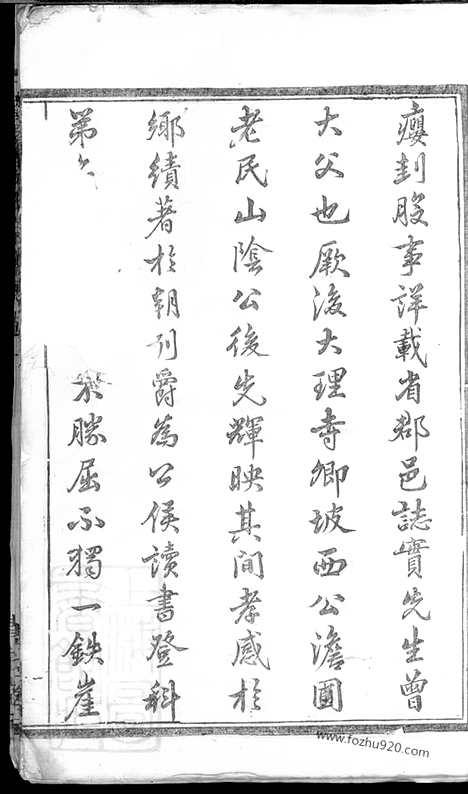 瘿刲股事詳載省郡邑誌實先生曾
大父也厥後大理寺卿坡西公澹園
老民山陰公後先輝映其間孝感於
鄉績著於朝列爵為公侯讀書登科
第 不勝屈不獨一鉄崖
www.fozhu920.com